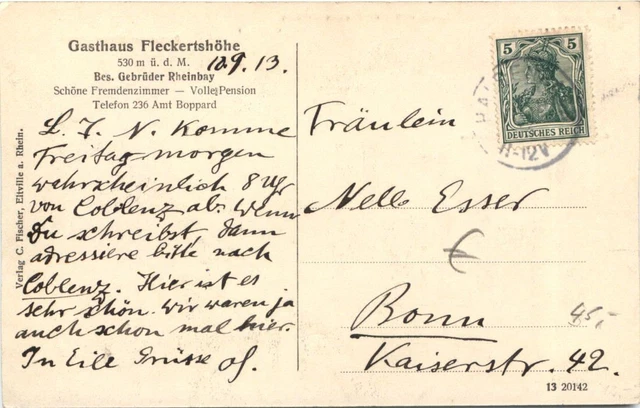 Gasthaus Fleckertshöhe
530 m ü. d. M.
10.9.13.
Bes. Gebrüder Rheinbay
Schöne Fremdenzimmer — Volle Pension
Telefon 236 Amt Boppard
L. F. N. Komme
Freitag morgen
wahrscheinlich 8 Uhr
von Coblenz ab. Wenn
Du schreibst, dann
adressiere bitte nach
Coblenz. Hier ist es
sehr schön. Wir waren ja
auch schon mal hier.
In Eile Grüsse
Verlag C. Fischer, Eltville a. Rhein.
5 5
DEUTSCHES REICH
11-12V
Fräulein
Nelle Esser
Bonn
Kaiserstr. 42.
45,-
13 20142